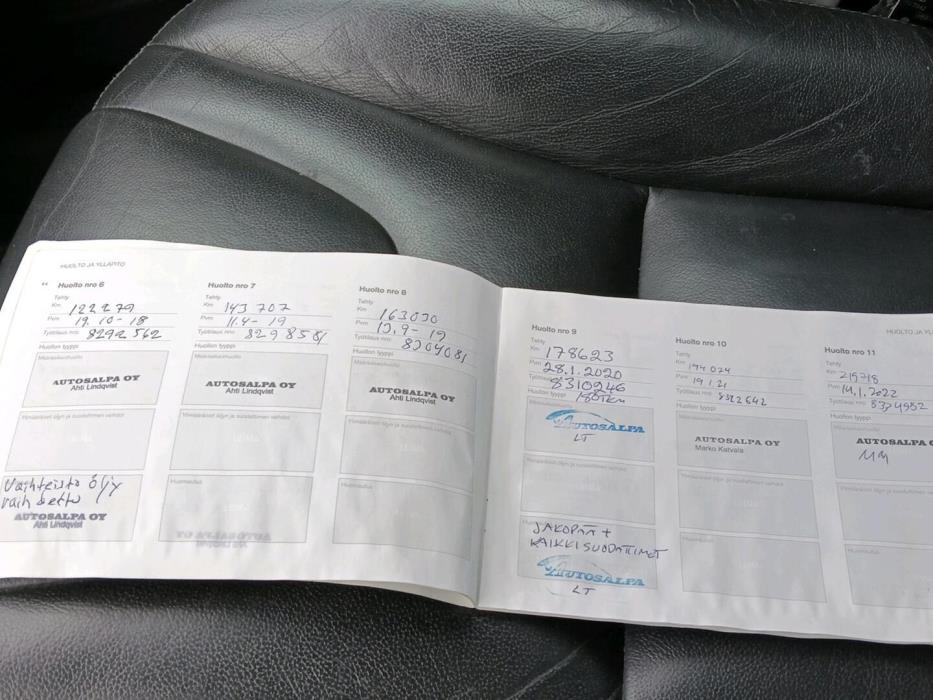 HUOLTO JA YLLÄPITO
Huolto nro 6
Tehty
Km 122279
Pvm 19.10-18
Työtilaus nro: 8292562
Huollon tyyppi
Määräaikaishuolto
AUTOSALPA OY
Ahti Lindqvist
Vaihteisto öljy
vaihdettu
AUTOSALPA OY
Ahti Lindqvist
Huolto nro 7
Tehty
Km 143 707
Pvm 11.4-19
Työtilaus nro: 8298581
Huollon tyyppi
Määräaikaishuolto
AUTOSALPA OY
Ahti Lindqvist
Huomautus
Huolto nro 8
Tehty
Km 163030
Pvm
Työtilaus nro:
Huollon tyyppi
Määräaikaishuolto
AUTOSALPA OY
Ahti Lindqvist
Huomautus
Huolto nro 9
Tehty
Km 178623
Pvm 28.1.2020
Työtilaus nro: 8310946
Huollon tyyppi 180TKM
AUTOSALPA
LT
JAKOPÄÄ +
KAIKKI SUODATTIMET
AUTOSALPA
LT
HUOLTO JA
Huolto nro 10
Tehty
Km 194 024
Pvm 19.1.21
Työtilaus nro: 8322642
Huollon tyyppi
AUTOSALPA OY
Marko Katvala
Huolto nro 11
Tehty
Km 219718
Pvm 14.1.2022
Työtilaus nro: 8334952
Huollon tyyppi
AUTOSALPA
MM